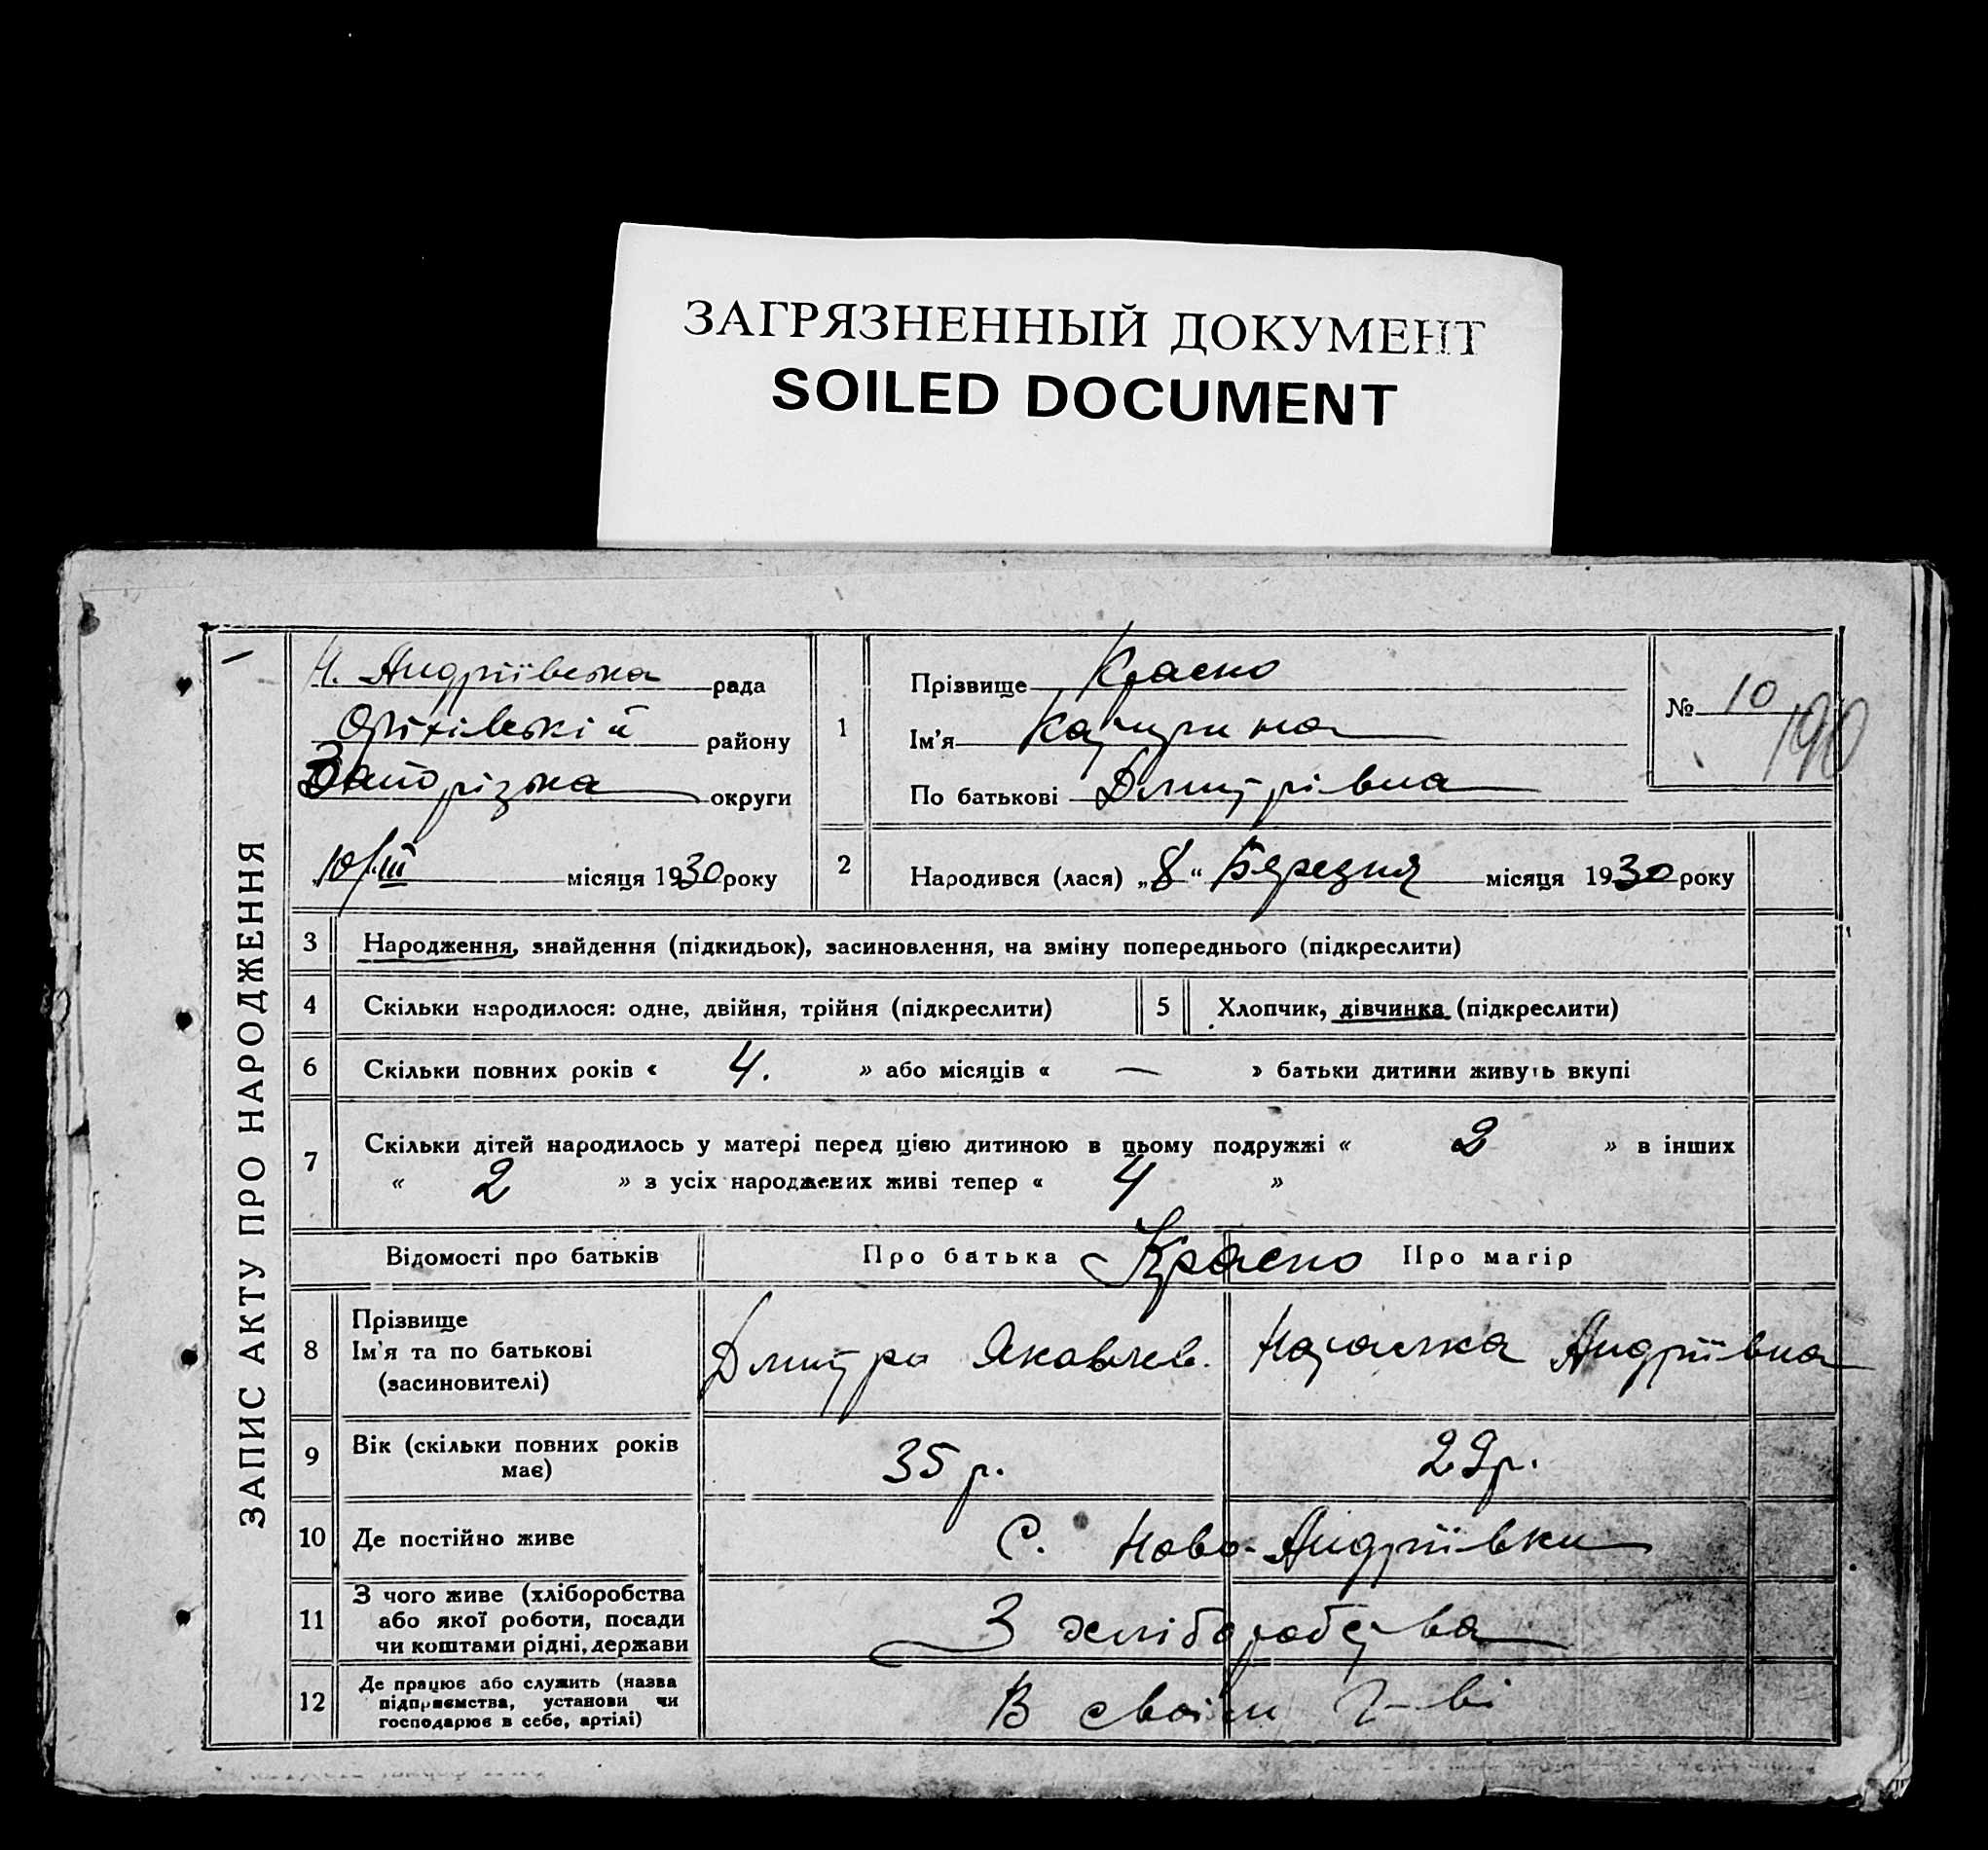 ЗАГРЯЗНЕННЫЙ ДОКУМЕНТ
SOILED DOCUMENT
ЗАПИС АКТУ ПРО НАРОДЖЕННЯ
Н. Андріївська рада
Оріхівський району
Запорізька округи
10/III місяця 1930 року
1
Прізвище Красно
Ім'я Катерина
По батькові Дмитрівна
№ 10
190
2 Народився (лася) „8“ Березня місяця 1930 року
3 Народження, знайдення (підкидьок), засиновлення, на зміну попереднього (підкреслити)
4 Скільки народилося: одне, двійня, трійня (підкреслити)
5 Хлопчик, дівчинка (підкреслити)
6 Скільки повних років « 4. » або місяців « — » батьки дитини живуть вкупі
7 Скільки дітей народилось у матері перед цією дитиною в цьому подружжі « 2 » в інших
« 2 » з усіх народжених живі тепер « 4 »
Відомості про батьків Про батька Красно Про матір
8 Прізвище
Ім'я та по батькові
(засиновителі)
Дмитро Яковлев. Наталка Андріївна
9 Вік (скільки повних років
має)
35 р. 29 р.
10 Де постійно живе С. Ново-Андріївки
11 З чого живе (хліборобства
або якої роботи, посади
чи коштами рідні, держави
З хліборобства
12 Де працює або служить (назва
підприємства, установи чи
господарює в себе, артілі)
В своїм г-ві